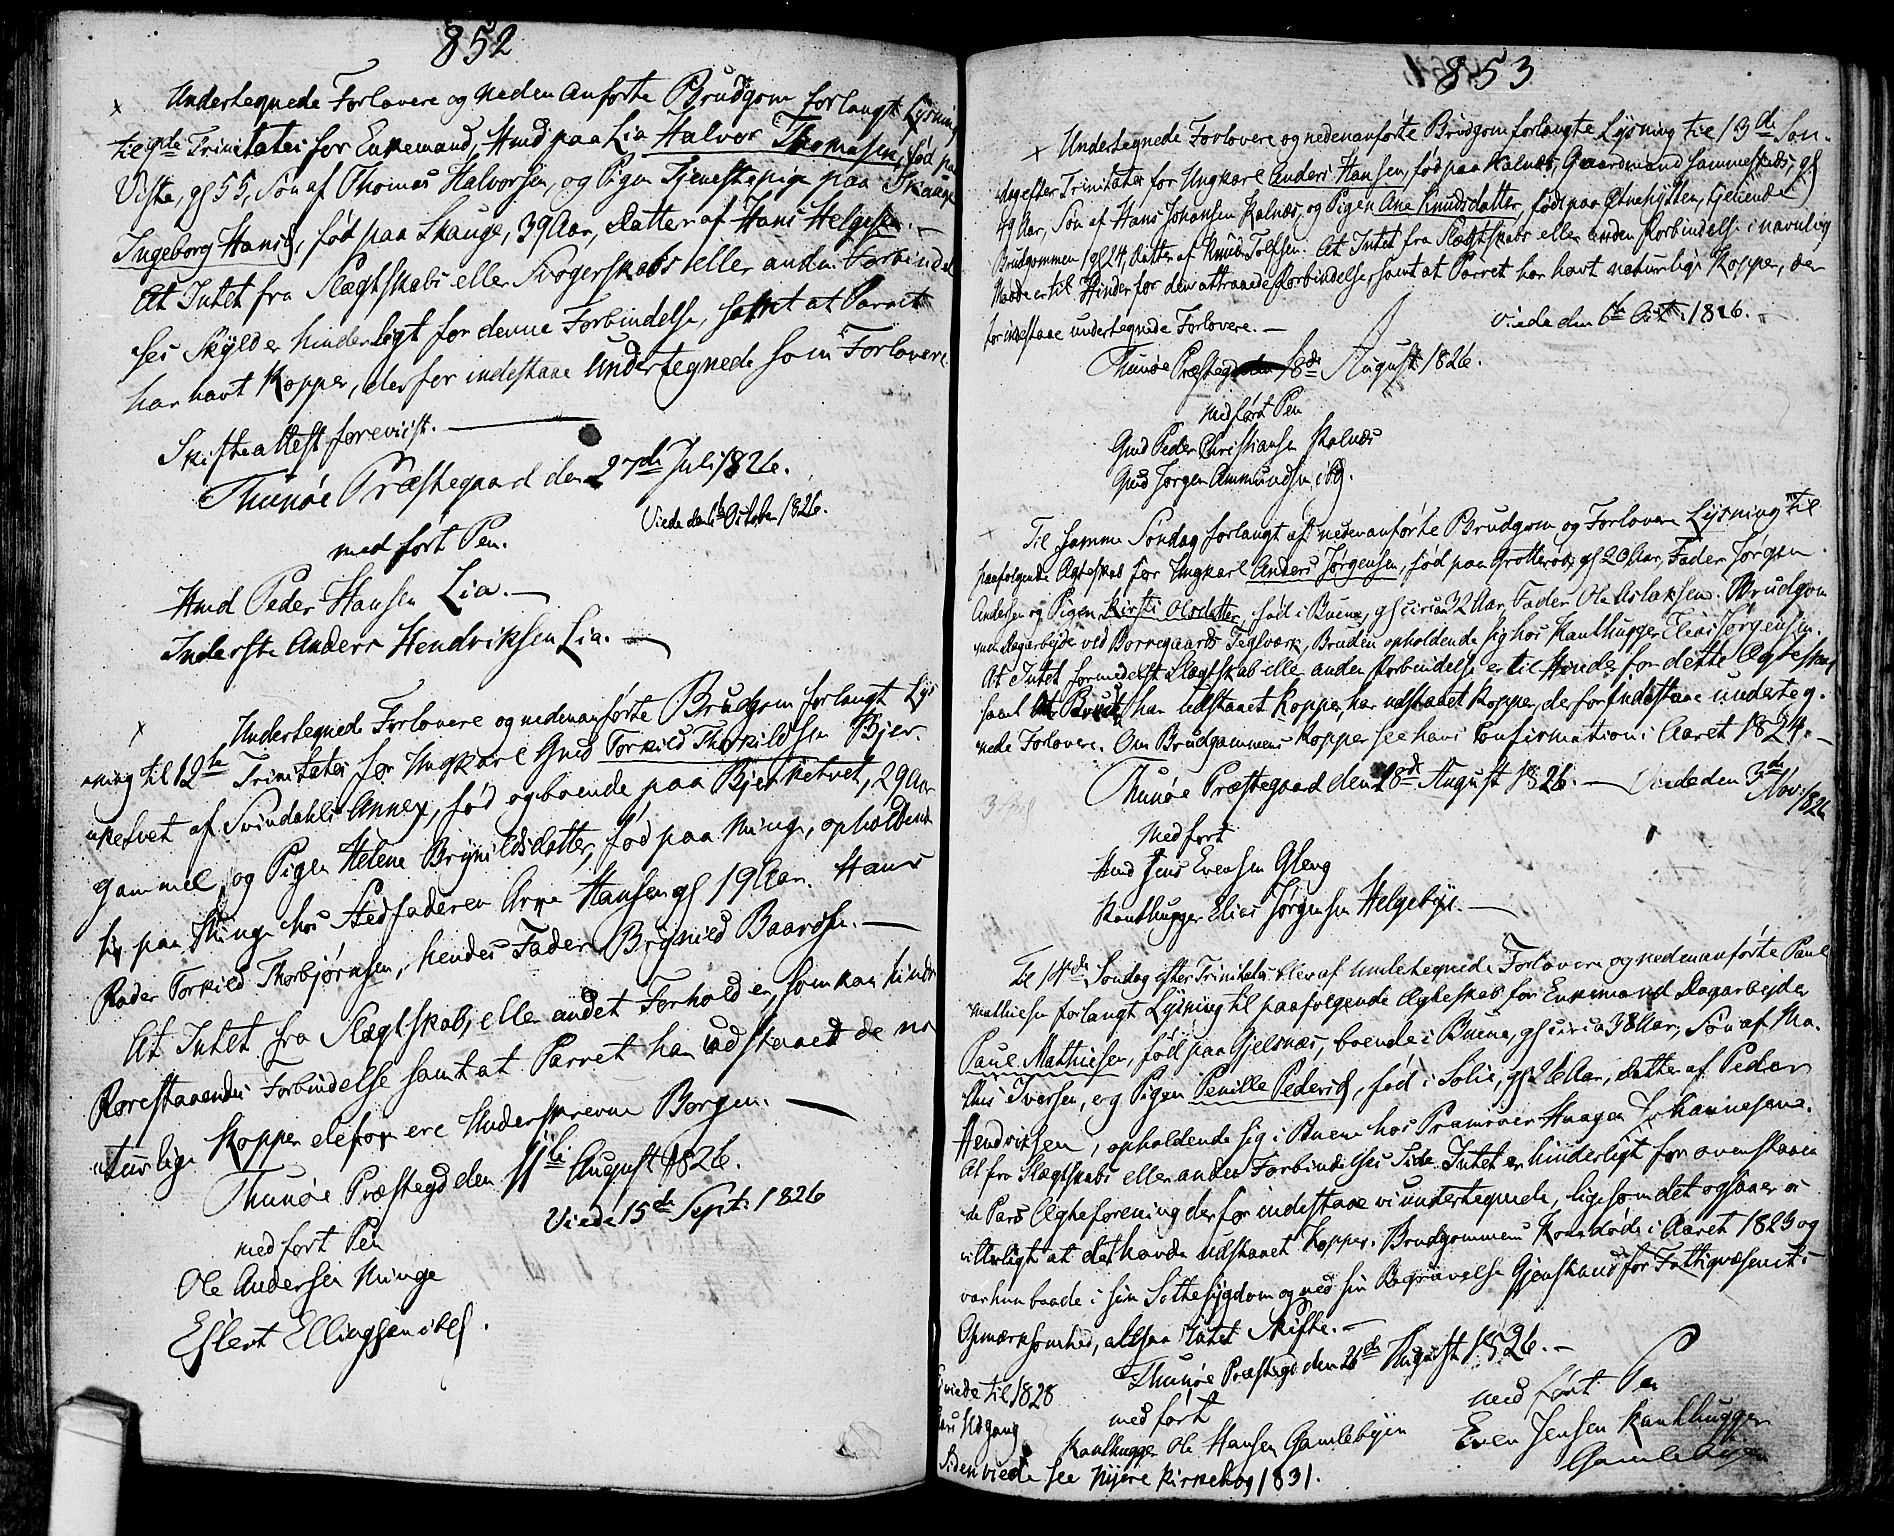 852
x Undertegnede Forlovere og nedenanførte Brudgom forlangt Lysning
til 9de Trinitatis for Enkemand, Hmd paa Lia Halvor Thomasen, fød paa
Vista, gl 55, Søn af Thomas Halvorsen, og Pigen Tjenestepige paa Skauge
Ingeborg Hansd, fød paa Skauge, 39 Aar, Datter af Hans Helgesen. —
At Intet fra Slægtskabs eller Svogerskabs eller anden Forbindel
ses Skyld er hinderligt for denne Forbindelse, samt at Parret
har havt Kopper, derfor indestaae Undertegnede som Forlovere
Skifteattest foreviist. —
Thunøe Præstegaard den 27de Juli 1826.
Viede den 6te October 1826.
med ført Pen.
Hmd Peder Hansen Lia. —
Inderste Anders Hendriksen Lia. —
x Undertegnede Forlovere og nedenanførte Brudgom forlangt Lys
ning til 12te Trinitatis for Ungkarl Gmd Torkild Thorkildsen Bjer
ketvet af Svindahls Annex, fød og boende paa Bjerketvet, 29 Aar
gammel, og Pigen Helene Brynildsdatter, fød paa Ninge, opholdende
sig paa Ninge hos Stedfaderen Arne Hansen gl 19 Aar. Hans
Fader Torkild Thorbjørnsen, hendes Fader Brynild Baardsen. —
At Intet fra Slægtskabs, eller andet Forhold er, som kan hindre
Forestaaendes Forbindelse samt at Parret har udstaaet de na
turlige Kopper derfor ere Underskrevne Borgen. —
Thunøe Præstegd den 11te August 1826.
Viede 15de Sept: 1826
med ført Pen
Ole Andersen Ninge
Eflert Ellingsen ibd.
853
x Undertegnede Forlovere og nedenanførte Brudgom forlangte Lysning til 13de Søn-
dag efter Trinitatis for Ungkarl Anders Hansen, fød paa Kalnæs, Gaardmand sammesteds, gl
49 Aar, Søn af Hans Johansen Kalnæs, og Pigen Ane Knudsdatter, fød paa Ødnehytten, tjenende
Brudgommen, gl 24, Datter af Knud Tolfsen. At Intet fra Slægtskabs eller anden Forbindelse i navnlig
Maade er til Hinder for den attraaede Forbindelse, samt at Parret har havt naturlige Kopper, der
for indestaae undertegnede Forlovere. —
Viede den 6te Oct. 1826.
Thunøe Præstegd 18de August 1826.
med ført Pen
Gmd Peder Christiansen Kalnæs
Gmd Jørgen Ammundsen ibd.
x Til samme Søndag forlangt af nedenanførte Brudgom og Forlovere Lysning til
paafølgende Ægteskab for Ungkarl Anders Jørgensen, fød paa Grotterød, gl 20 Aar, Fader Jørgen
Andersen og Pigen Kirsti Olsdatter, fød i Buene, gl circa 32 Aar, Fader Ole Aslaksen. Brudgom
men Dagarbejder ved Borregaards Teglværk, Bruden opholdende sig hos Kanthugger Elias Jørgensen.
At Intet formedelst Slægtskab eller anden Forbindelse er til Hinder for dette Ægteskab
samt at Bruden har udstaaet Kopper, har udstaaet Kopper, derfor indestaae underteg-
nede Forlovere. Om Brudgommens Kopper see hans Confirmation i Aaret 1824. —
Thunøe Præstegaard den 18de August 1826. — Viede den 3de
Nov. 1826
Med ført
Hmd Jens Evensen Gleng
Kanthugger Elias Jørgensen Helgebye. —
Til 14de Søndag efter Trinitatis blev af Undertegnede Forlovere og nedenanførte Paul
Mathiesen forlangt Lysning til paafølgende Ægteskab for Enkemand Dagarbejder
Paul Mathiesen, fød paa Gjelsnæs, boende i Buene, gl circa 38 Aar, Søn af Ma-
this Iversen, og Pigen Pernille Pedersd, fød i Solie, gl 26 Aar, Datter af Peder
Hendriksen, opholdende sig i Buene hos Pramroer Haagen Johannesen.
At fra Slægtskabs eller anden Forbindelses Side Intet er hinderligt for ovenstaaen
de Pars Ægteforening derfor indestaae vi undertegnede, ligesom det ogsaa er os
vitterligt at det havde udstaaet Kopper. Brudgommens Kone døde i Aaret 1823 og
var hun baade i sin Sottesygdom og ved sin Begravelse Gjenstand for Fattigvæsenets
Opmærksomhed, altsaa intet Skifte. —
Thunøe Præstegd den 26de August 1826. —
viede til 1828
Udgang
med ført
med ført Pen
Kanthugger Ole Hansen Gamlebyen
Even Jensen Kanthugger
Gamlebyen
Siden viede see Nyere Kirkebog 1831.